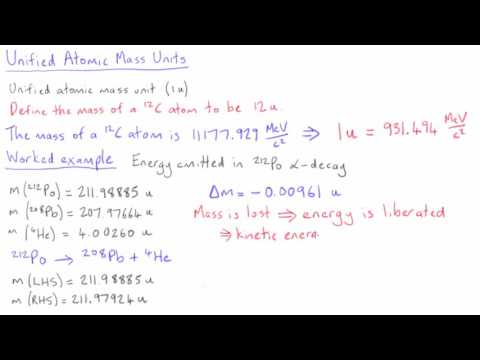 Unified Atomic Mass Units
Unified atomic mass unit (1u)
Define the mass of a ¹²C atom to be 12u.
The mass of a ¹²C atom is 11177.929 MeV/c² ⇒ 1u = 931.494 MeV/c²
Worked example Energy emitted in ²¹²Po α-decay
m(²¹²Po) = 211.98885 u
m(²⁰⁸Pb) = 207.97664 u
m(⁴He) = 4.00260 u
²¹²Po → ²⁰⁸Pb + ⁴He
m(LHS) = 211.98885 u
m(RHS) = 211.97924 u
Δm = -0.00961 u
Mass is lost ⇒ energy is liberated
⇒ kinetic energ